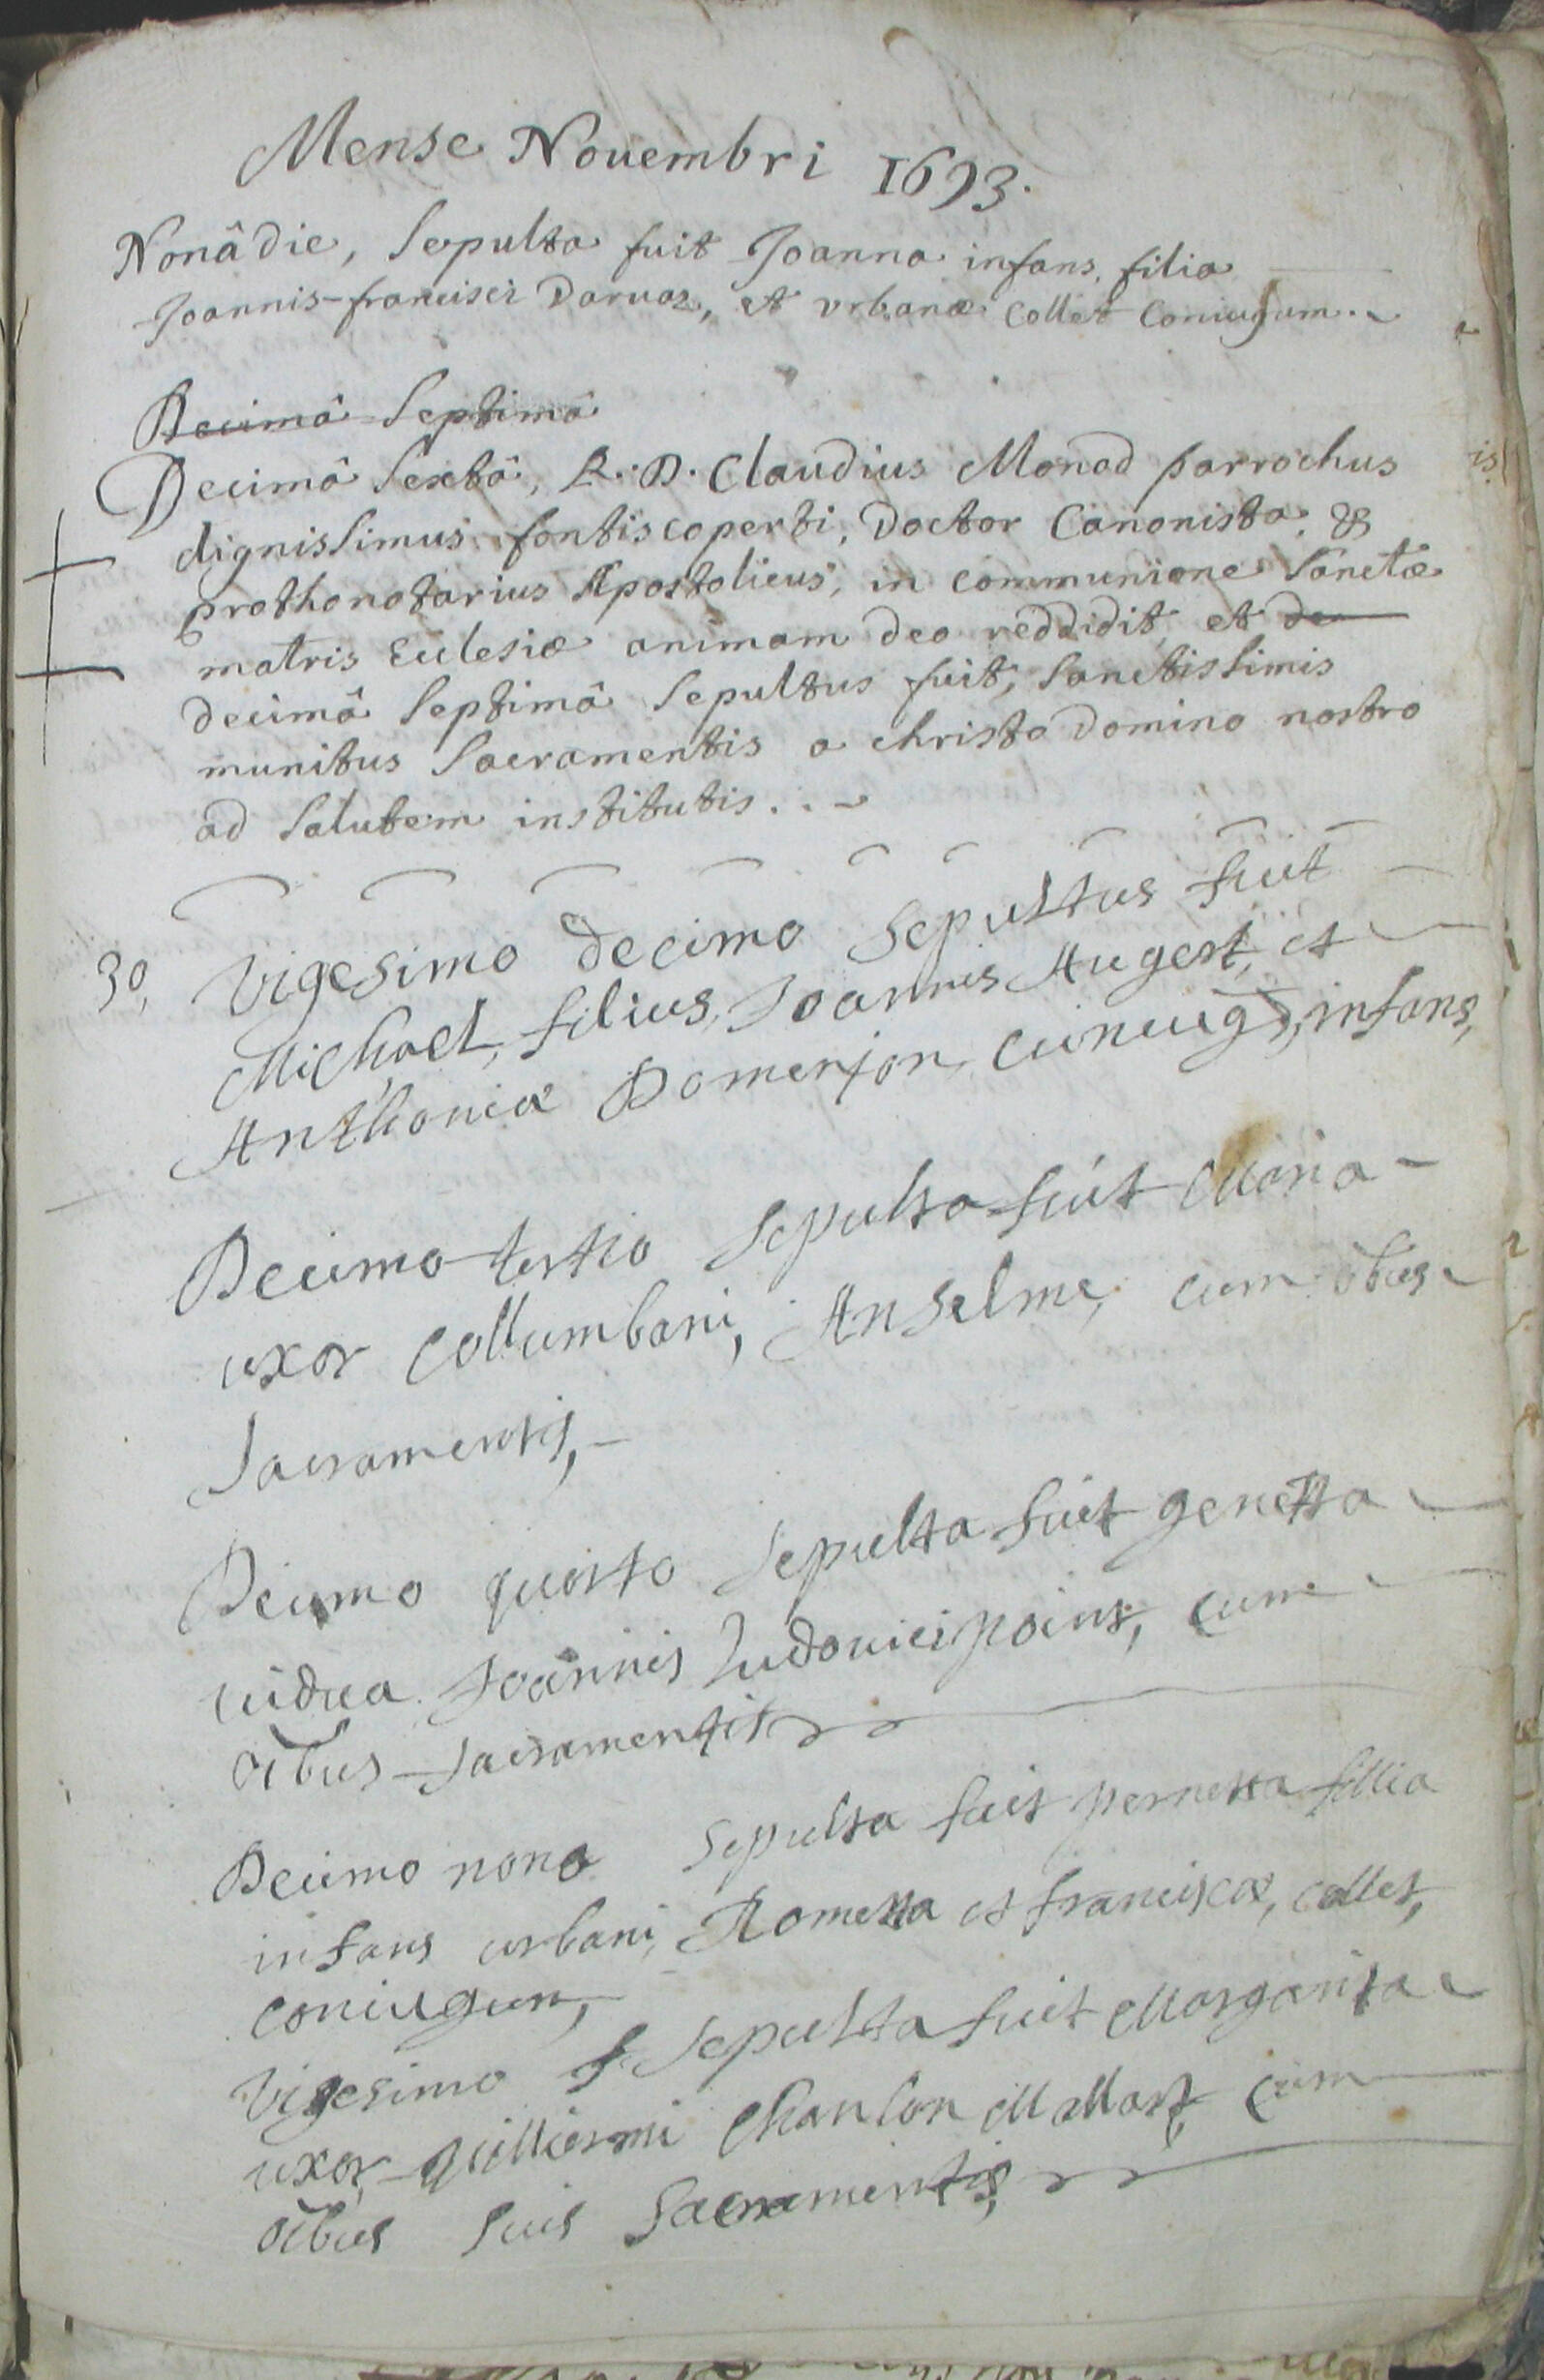 Mense Nouembri 1693.
Nonâ die, Sepulta fuit Joanna infans, filia
Joannis-francisci Daruaz, et vrbanæ Collet Coniugum..
Decimâ Septimâ
Decimâ Sextâ, R. D. Claudius Monod parrochus
dignissimus fontiscoperti, Doctor Canonista, &
prothonotarius Apostolicus, in communione Sanctæ
matris Ecclesiæ animam deo reddidit et de
decimâ Septimâ Sepultus fuit, Sanctissimis
munitus Sacramentis a christo Domino nostro
ad Salutem institutis...
30, Vigesimo decimo Sepultus fuit
Michael, filius, Joannis Augert, et
Anthoniæ Domenjon, coniug., infans,
Decimo-tertio Sepulta fuit Maria
uxor Collumbani, Anselme, cum oibus
Sacramentis,
Decimo quarto Sepulta fuit genetta
uidua Joannis Ludouici point, cum
oibus Sacramentis
Decimo nono Sepulta fuit pernetta fillia
infans urbani, Rometta et franciscæ, collet,
coniugum,
Vigesimo Sepulta fuit Margarita
uxor guilliermi Chanson Mallart, cum
oibus suis Sacramentis,